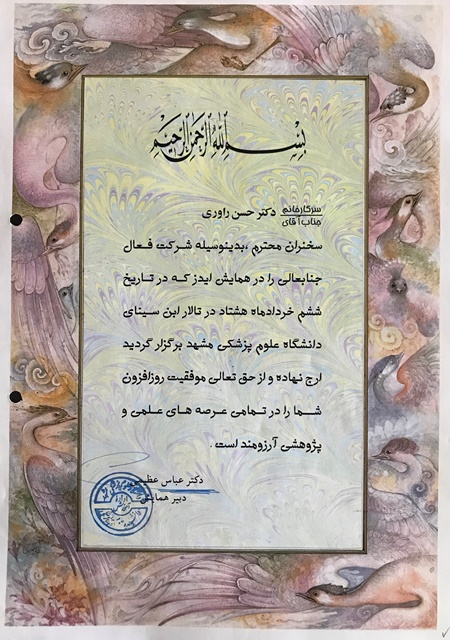 بسم الله الرحمن الرحیم
سرکار خانم
جناب آقای
دکتر حسن راوری
سخنران محترم ،بدینوسیله شرکت فعال
جنابعالی را در همایش ایدز که در تاریخ
ششم خردادماه هشتاد در تالار ابن سینای
دانشگاه علوم پزشکی مشهد برگزار گردید
ارج نهاده و از حق تعالی موفقیت روزافزون
شما را در تمامی عرصه های علمی و
پژوهشی آرزومند است .
دکتر عباس
دبیر همایش